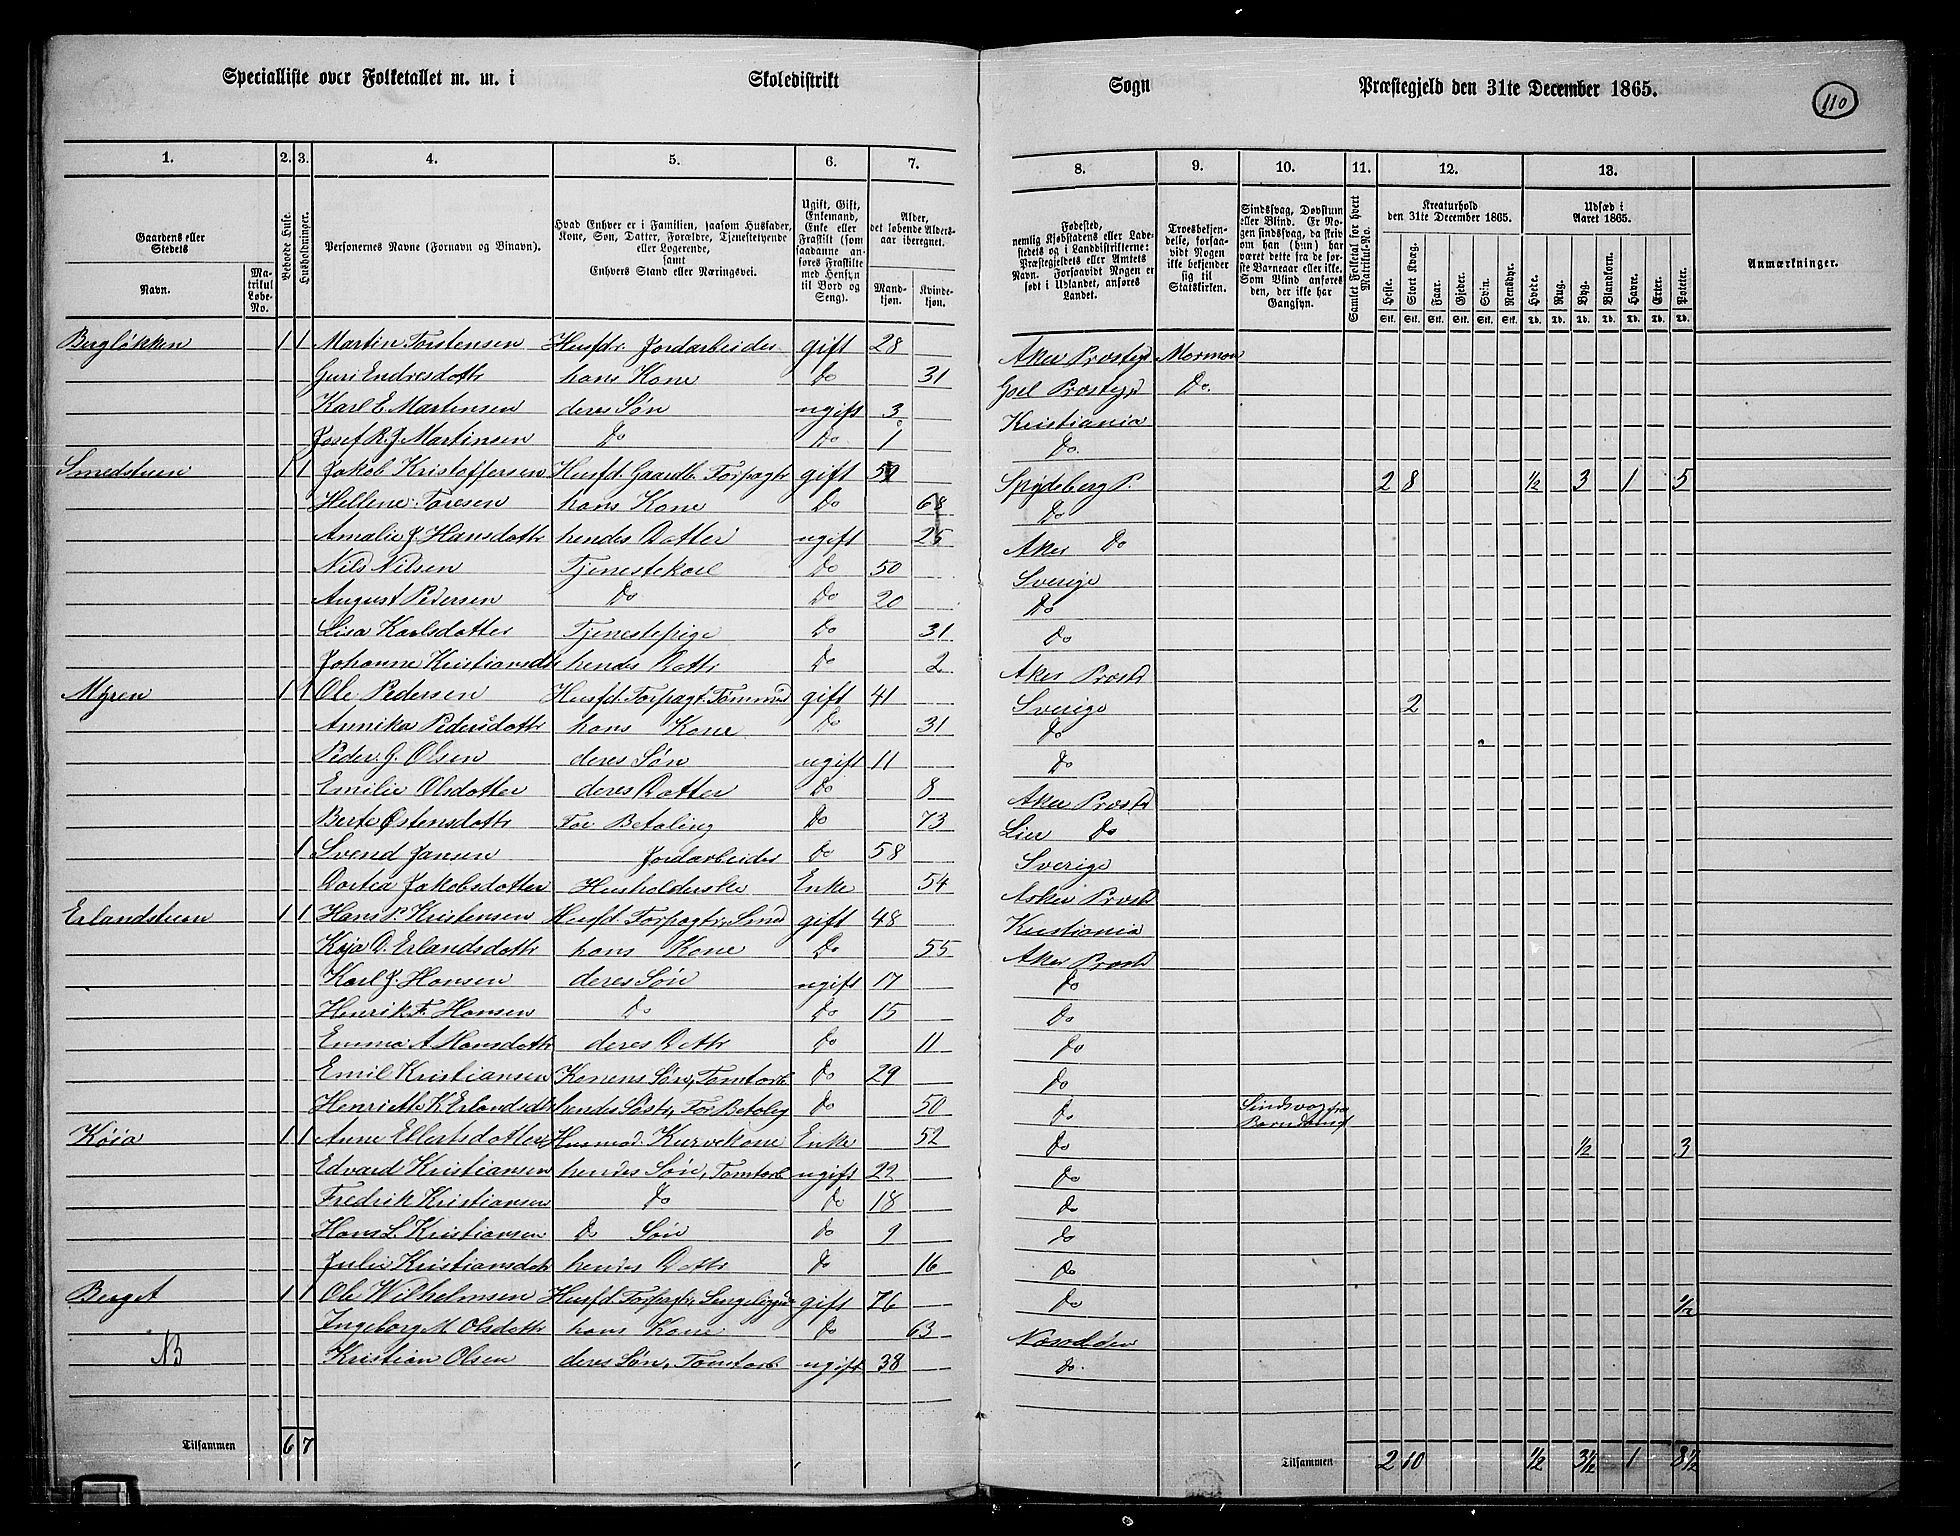 Specialliste over Folketallet m. m. i Skoledistrikt Sogn Præstegjeld den 31te December 1865. 110
1. 2. 3. 4. 5. 6. 7. 8. 9. 10. 11. 12. 13.
Gaardens eller Stedets Navn. Matrikul Løbe-No. Beboede Huse. Husholdninger. Personernes Navne (Fornavn og Binavn). Hvad Enhver er i Familien, saasom Husfader, Kone, Søn, Datter, Forældre, Tjenestetyende eller Logerende, samt Enhvers Stand eller Næringsvei. Ugift, Gift, Enkemand, Enke eller Fraskilt (som saadanne anføres Fraskilte med Hensyn til Bord og Seng). Alder, det løbende Aldersaar iberegnet. Mandkjøn. Kvindekjøn.
Fødested, nemlig Kjøbstadens eller Ladestedets og i Landdistrikterne: Præstegjeldets eller Amtets Navn. Forsaavidt Nogen er født i Udlandet, anføres Landet. Troesbekjendelse, forsaavidt Nogen ikke bekjender sig til Statskirken. Sindssvag, Døvstum eller Blind. Er Nogen sindssvag, da skrives om han (hun) har været dette fra de første Barneaar eller ikke. Som Blind anføres den, der ikke har Gangsyn. Samlet Folketal for hvert Matrikul-No. Kreaturhold den 31te December 1865. Heste. Stort Kvæg. Faar. Gjeder. Svin. Rensdyr. Udsæd i Aaret 1865. Hvede. Rug. Byg. Blandkorn. Havre. Erter. Poteter. Anmærkninger.
Stk. Stk. Stk. Stk. Stk. Stk. Td. Td. Td. Td. Td. Td. Td.
Bergløkken 1 1 Martin Torstensen Husfdr Jordarbeider gift 28 Aker Præstegd Mormon
Guri Endresdottr hans Kone Do 31 Goel Præstegd Do.
Karl E. Martensen deres Søn ugift 3 Kristiania
Josef R. J. Martinsen Do Do 1 Do.
Smedstuen 1 1 Jakob Kristoffersen Husfd. Gaardb. Forpagtr gift Spydeberg P. 2 8 1/2 3 1 5
Hellene Toresen hans Kone Do 68 Do
Amalie J. Hansdottr hendes Datter ugift 25 Aker Do
Nils Nilsen Tjenestekarl Do 50 Sverige
August Pedersen Do Do 20 Do
Lisa Karlsdotter Tjenestepige Do 31 Do
Johanne Kristiansdtr hendes Dottr Do 2 Aker Præstd
Myren 1 1 Ole Pedersen Husfd. Forpagt. Tømmrd gift 41 Sverige 2
Annika Pedersdottr hans Kone Do 31 Do
Peder G. Olsen deres Søn ugift 11 Do
Emilie Olsdotter deres Datter Do 8 Aker Præstd
Berte Østensdottr For Betaling Do 73 Lier Do
1 Svend Jansen Jordarbeider Do 58 Sverige
Dortea Jakobsdotter Husholderske Enke 54 Asker Præstd
Erlandstuen 1 1 Hans P. Kristensen Husfd. Forpagtr, Smed gift 48 Kristiania
Kaja D. Erlandsdottr hans Kone Do 55 Aker Præstd
Karl J. Hansen deres Søn ugift 17 Do
Henrik F. Hansen Do Do 15 Do
Emma A Hansdottr deres Dottr Do 11 Do
Emil Kristiansen Konens Søn, Tomtarb. Do 29 Do
Henriette K. Erlandsdtr hendes Søstr, For Betalig Do 50 Do Sindsvag fra Barndomd
Køia 1 1 Anne Ellertsdotter Husmod. Kurvekone Enke 52 Do 1/2 3
Edvard Kristiansen hendes Søn, Tomtarb. ugift 22 Do
Fredrik Kristiansen Do Do 18 Do
Hans L. Kristiansen Do Søn Do 9 Do
Julie Kristiansdotr hendes Dottr Do 16 Do
Berget 1 1 Ole Wilhelmsen Husfd. Forpagtr, Sengeliggd gift 76 Do 1/2
Ingeborg M. Olsdottr hans Kone Do 63 Næsodden
NB Kristian Olsen deres Søn, Tomtarb. ugift 38 Do.
Tilsammen 6 7 Tilsammen 2 10 1/2 3 1/2 1 8 1/2